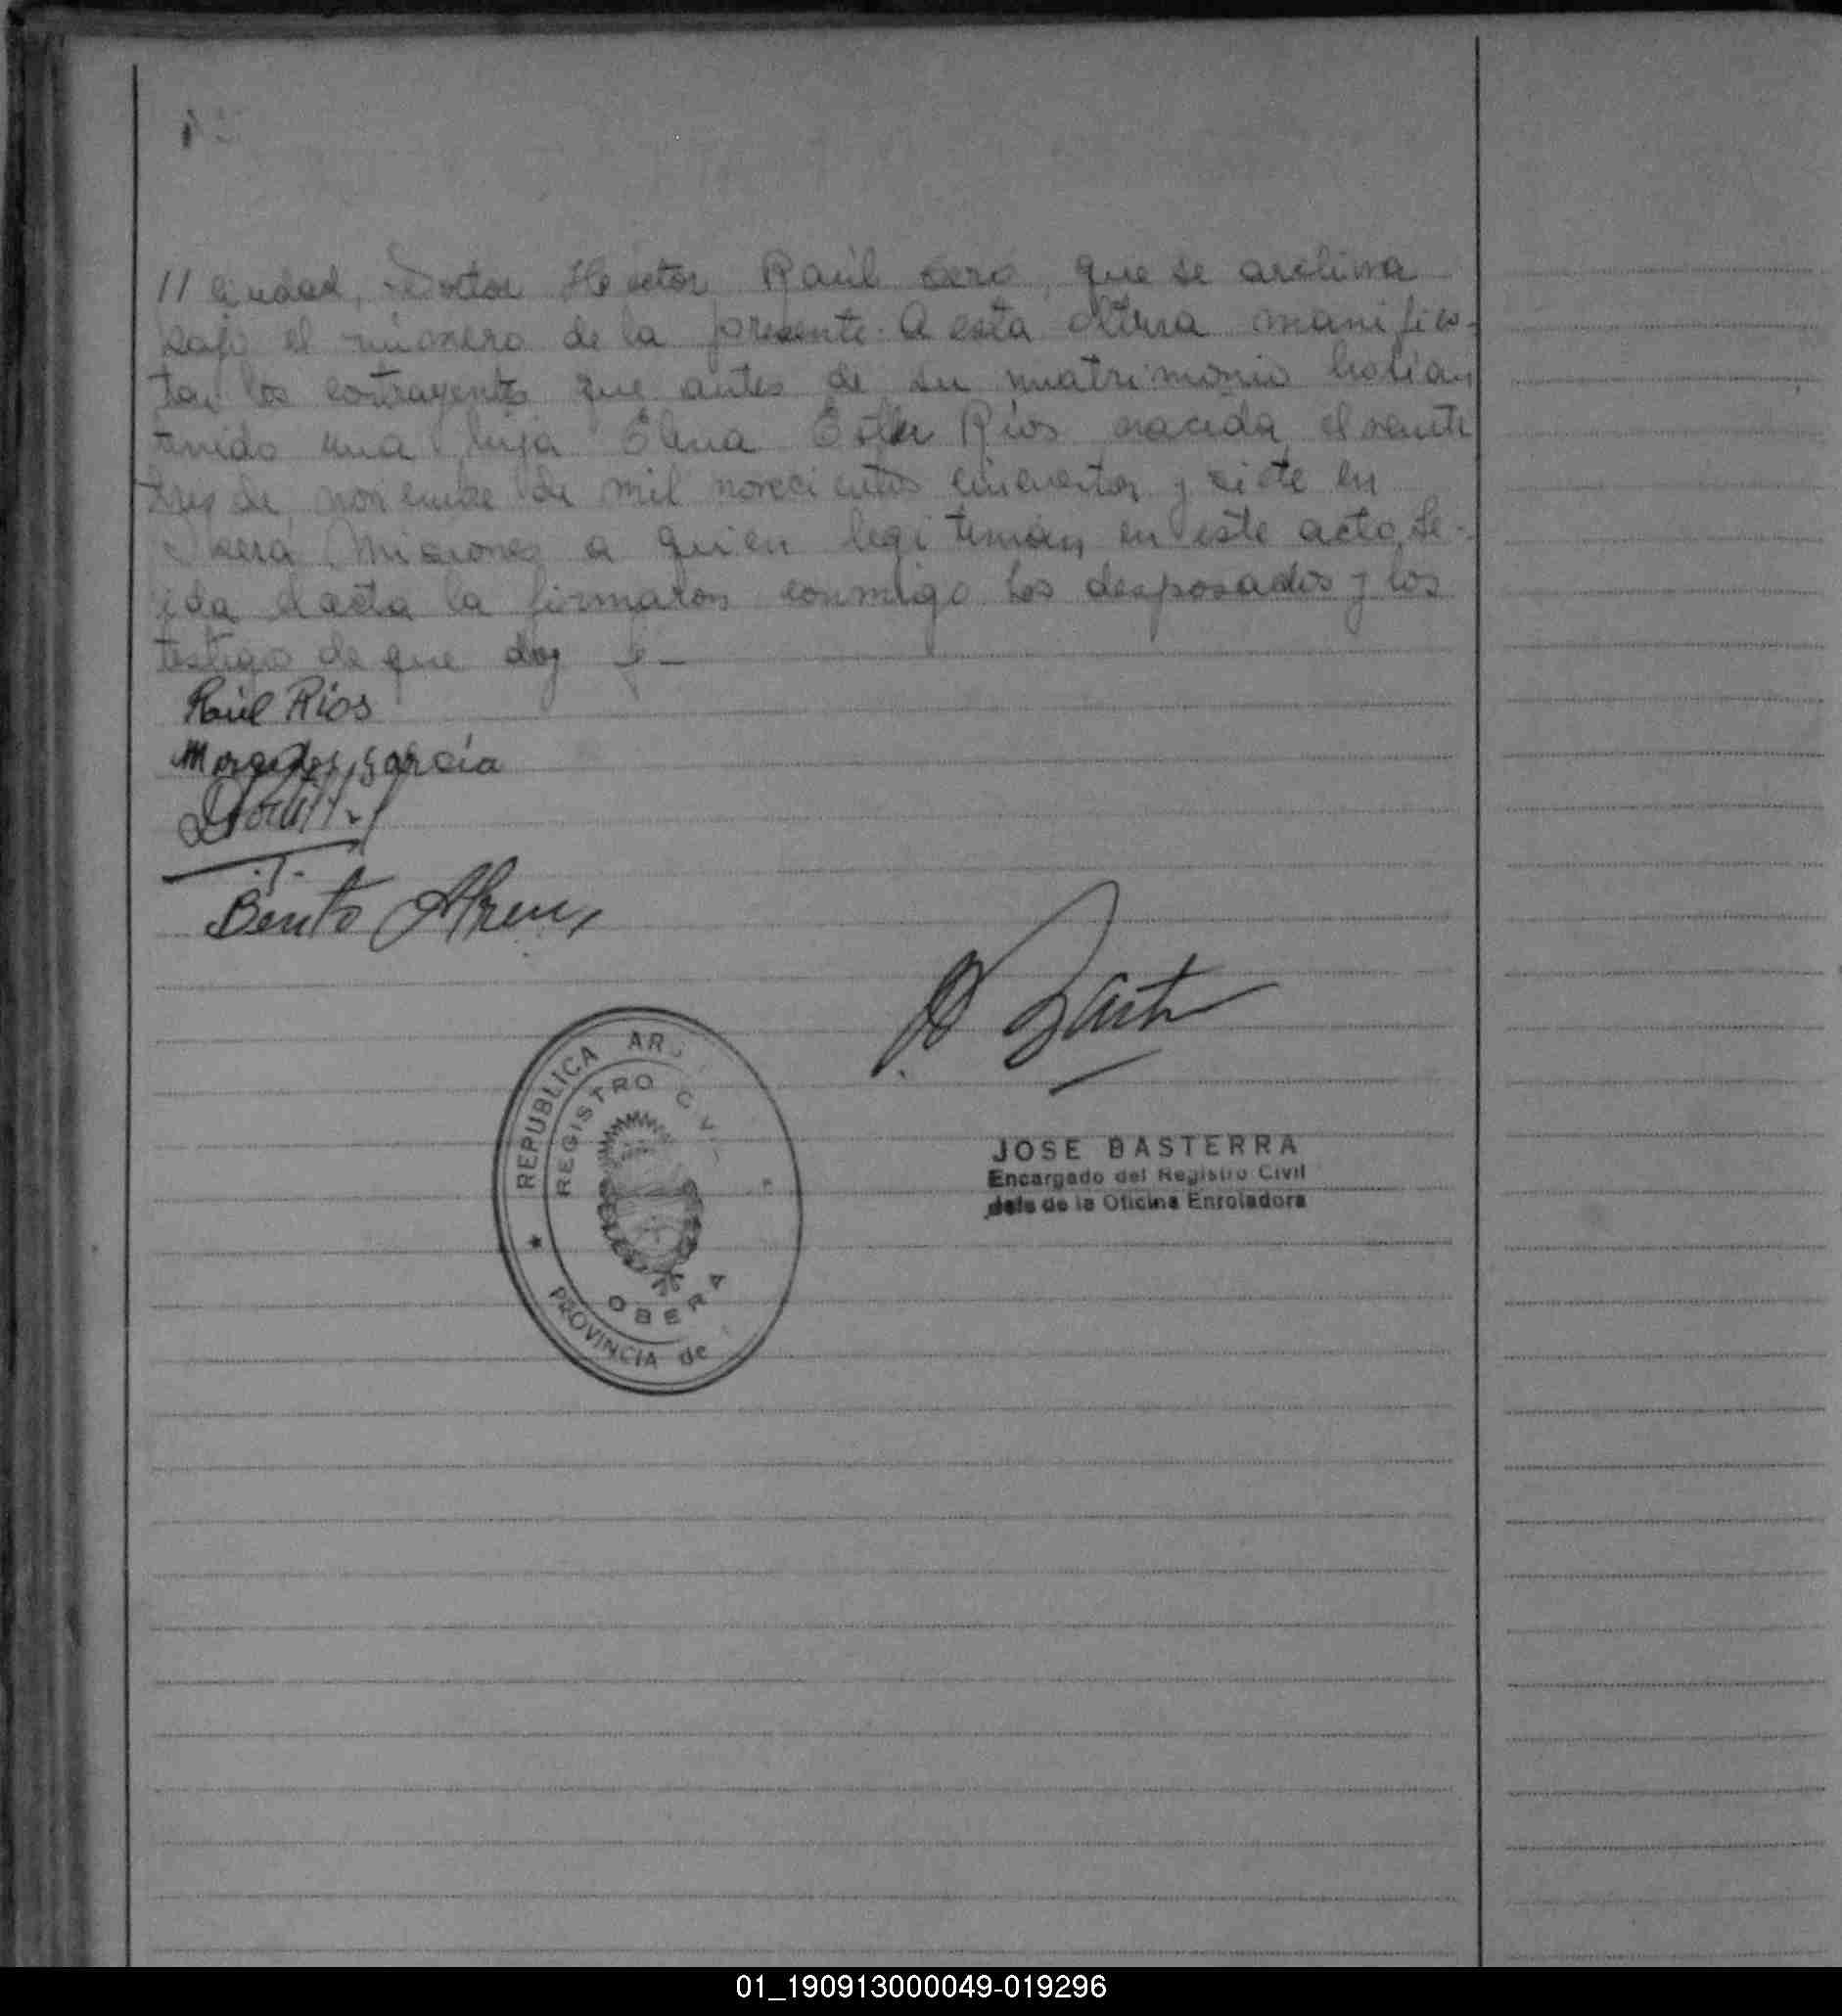 // ciudad, Doctor Hector Raúl que se archiva
bajo el número de la presente. A esta altura manifies-
tan los contrayentes que antes de su matrimonio habían
tenido una hija Elena Ester Ríos nacida el veinti
tres de noviembre de mil novecientos cincuenta y siete en
Oberá Misiones a quien legitiman en este acto. Le-
ida el acta la firmaron conmigo los desposados y los
testigos de que doy fe -
Raúl Ríos
Mercedes García
Benito
JOSE BASTERRA
Encargado del Registro Civil
Jefe de la Oficina Enroladora
REPUBLICA AR
REGISTRO CIV
OBERA
PROVINCIA de
01_190913000049-019296